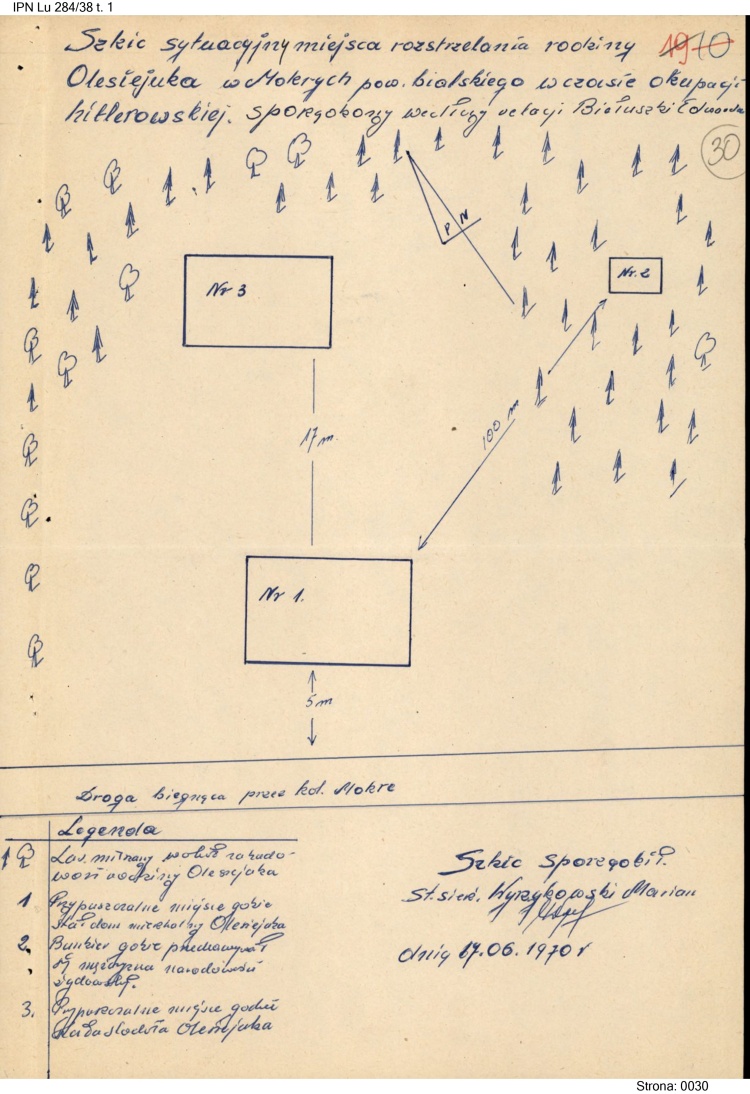 IPN Lu 284/38 t. 1
Szkic sytuacyjny miejsca rozstrzelania rodziny 1970
Olesiejuka w Mokrych pow. bialskiego w czasie okupacji
hitlerowskiej. sporządzony według relacji Bieluszki Edwarda
30
P N
Nr 3
Nr. 2
17 m
100 m
Nr 1.
5 m
Droga biegnąca przez kol. Mokre
Legenda
Las mieszany wokół zabudo-
wań rodziny Olesiejuka
1 Przypuszczalne miejsce gdzie
stał dom mieszkalny Olesiejuka
2. Bunkier gdzie przechowywał
się mężczyzna narodowości
żydowskiej.
3. Przypuszczalne miejsce gdzie
stała stodoła Olesiejuka
Szkic sporządził.
St. sierż. Wyrzykowski Marian
dnia 17.06.1970 r
Strona: 0030